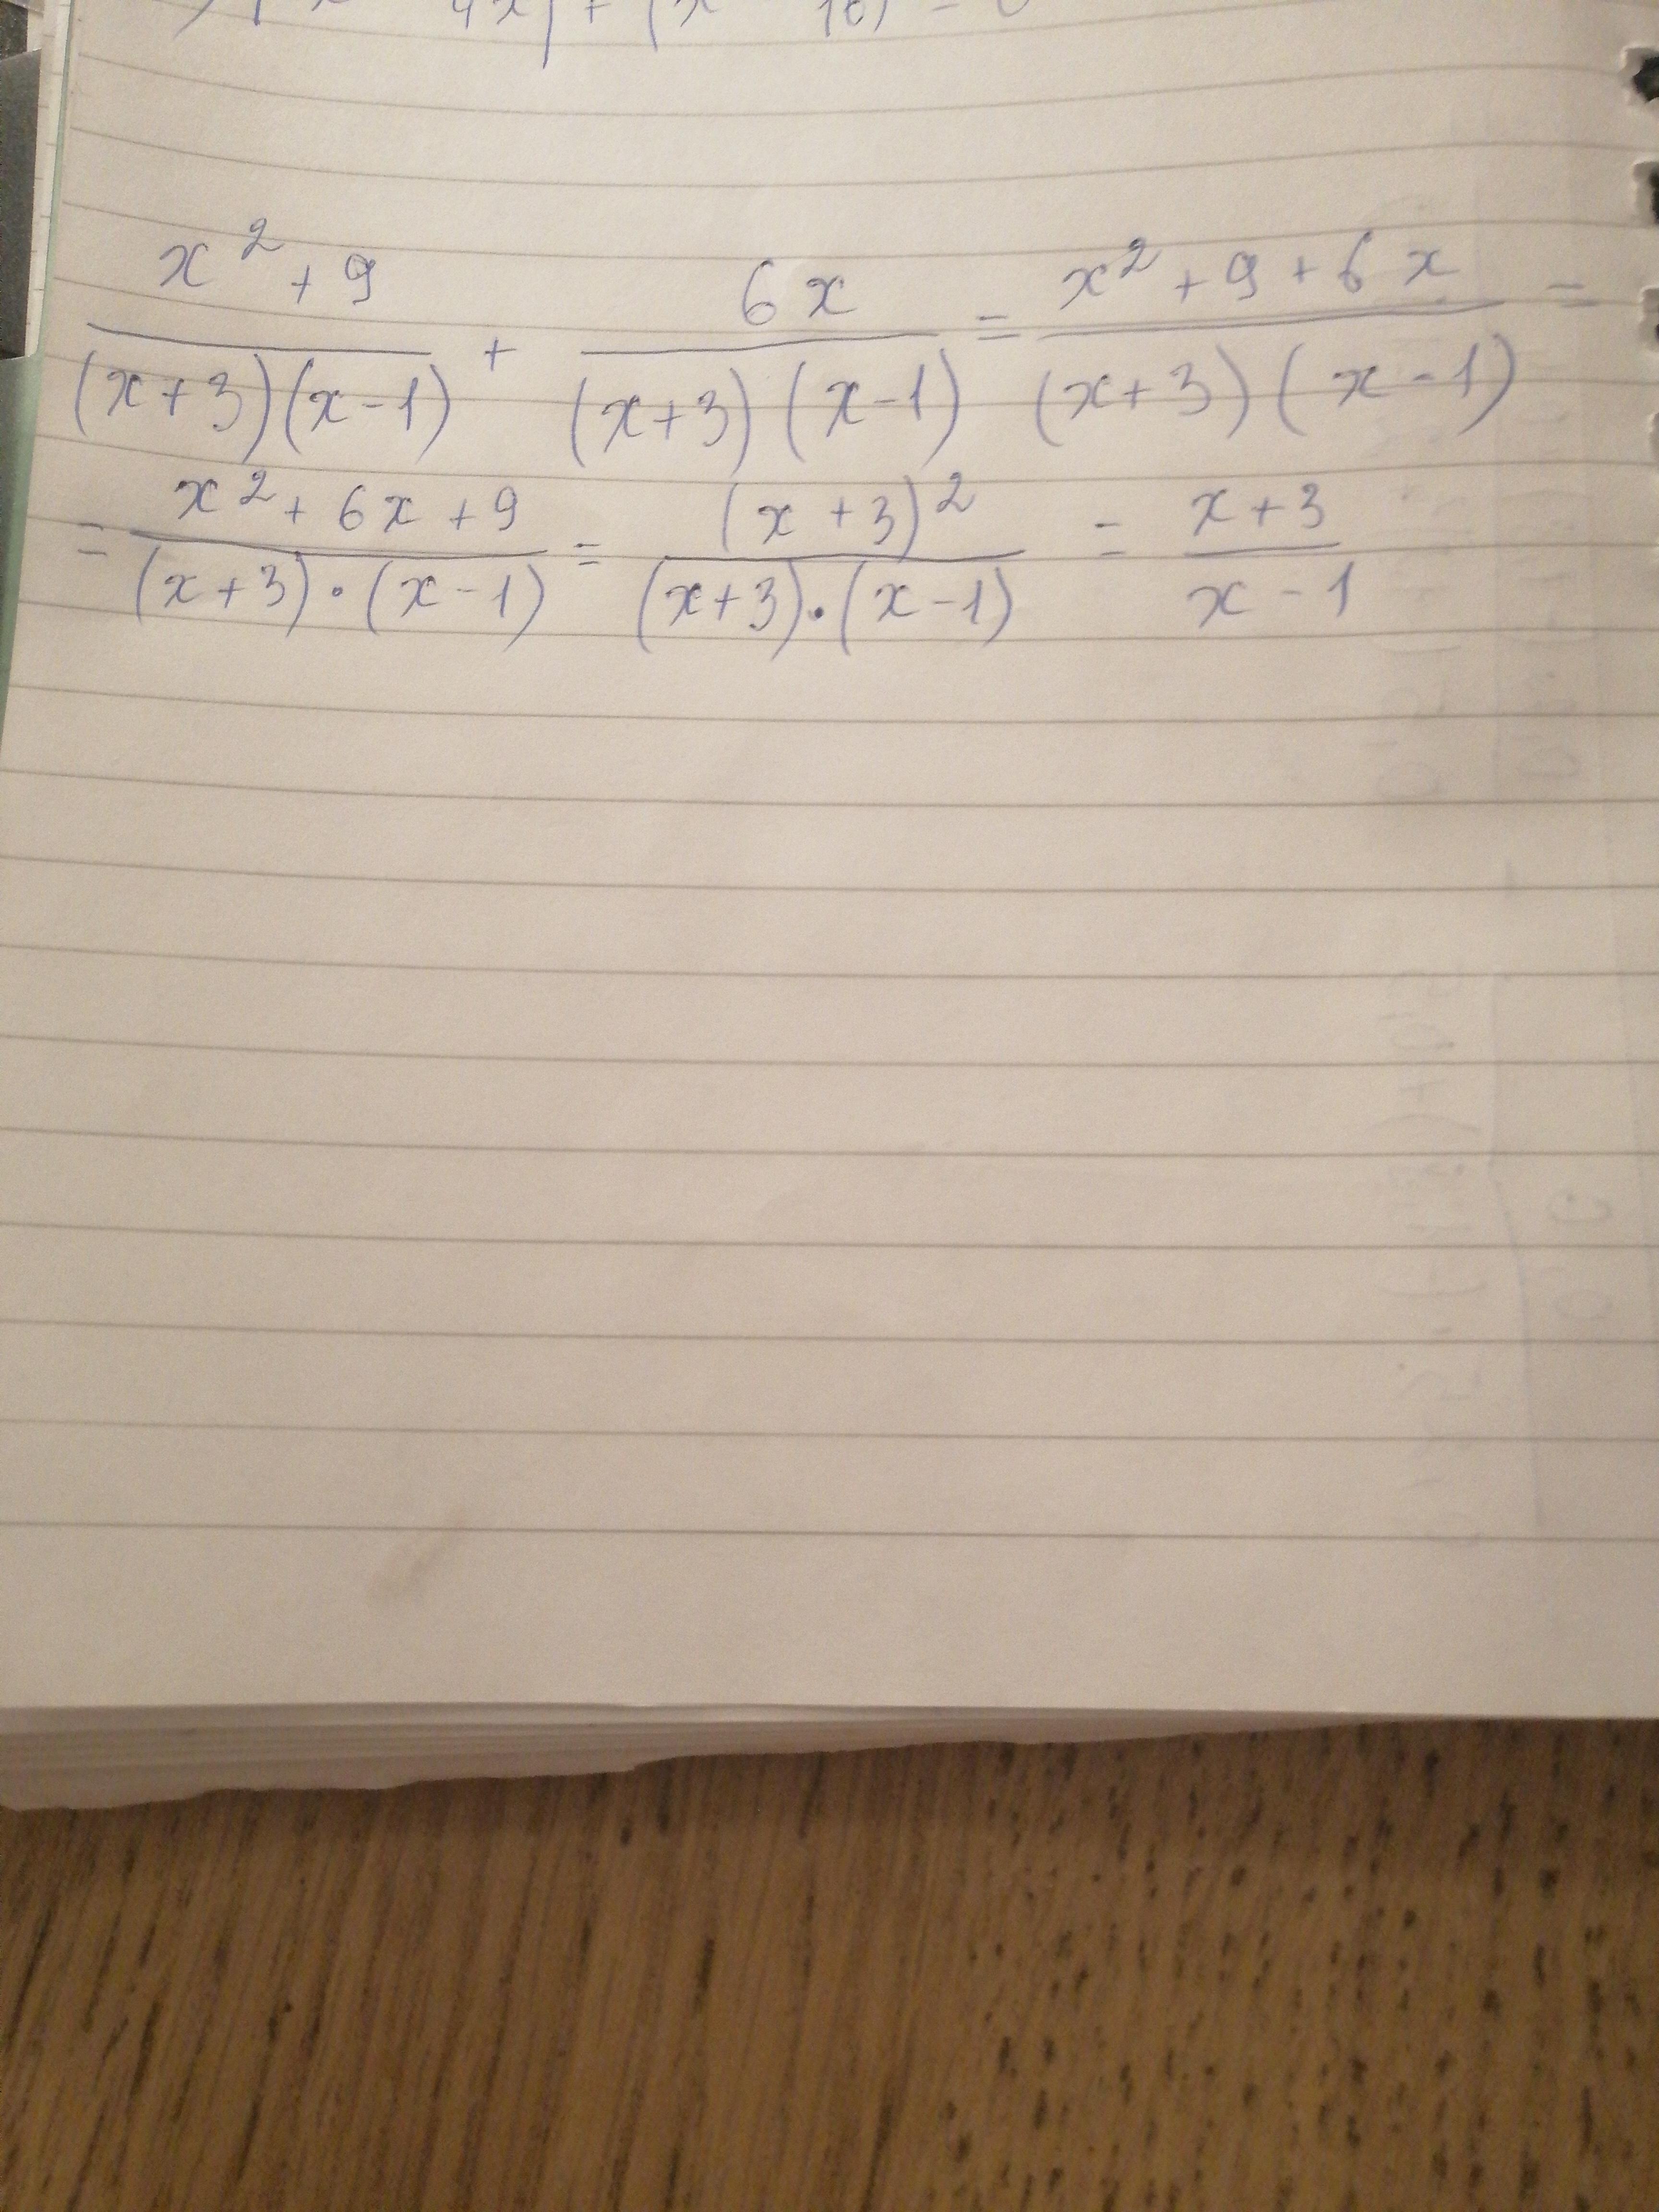 4x) + (x 16) = 0
(x²+9)/((x+3)(x-1)) + 6x/((x+3)(x-1)) = (x²+9+6x)/((x+3)(x-1)) =
= (x²+6x+9)/((x+3)·(x-1)) = (x+3)²/((x+3)·(x-1)) = (x+3)/(x-1)